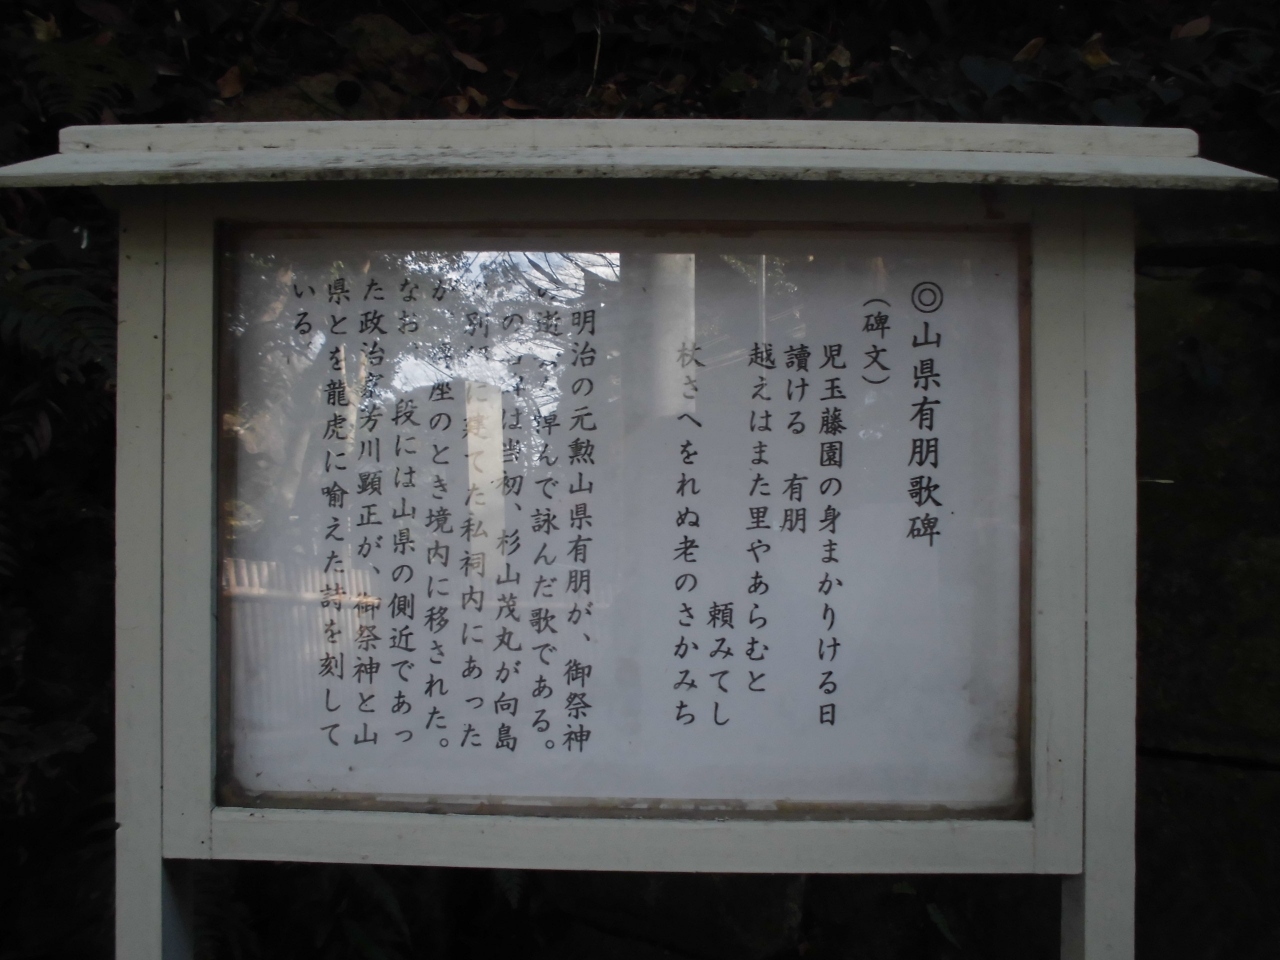 ◎山県有朋歌碑
（碑文）
児玉藤園の身まかりける日
讀ける　有朋
越えはまた里やあらむと
頼みてし
杖さへをれぬ老のさかみち
明治の元勲山県有朋が、御祭神
の逝 悼んで詠んだ歌である。
の は当初、杉山茂丸が向島
別 に建てた私祠内にあった
が、 座のとき境内に移された。
なお、 段には山県の側近であっ
た政治家芳川顕正が、御祭神と山
県とを龍虎に喻えた詩を刻して
いる